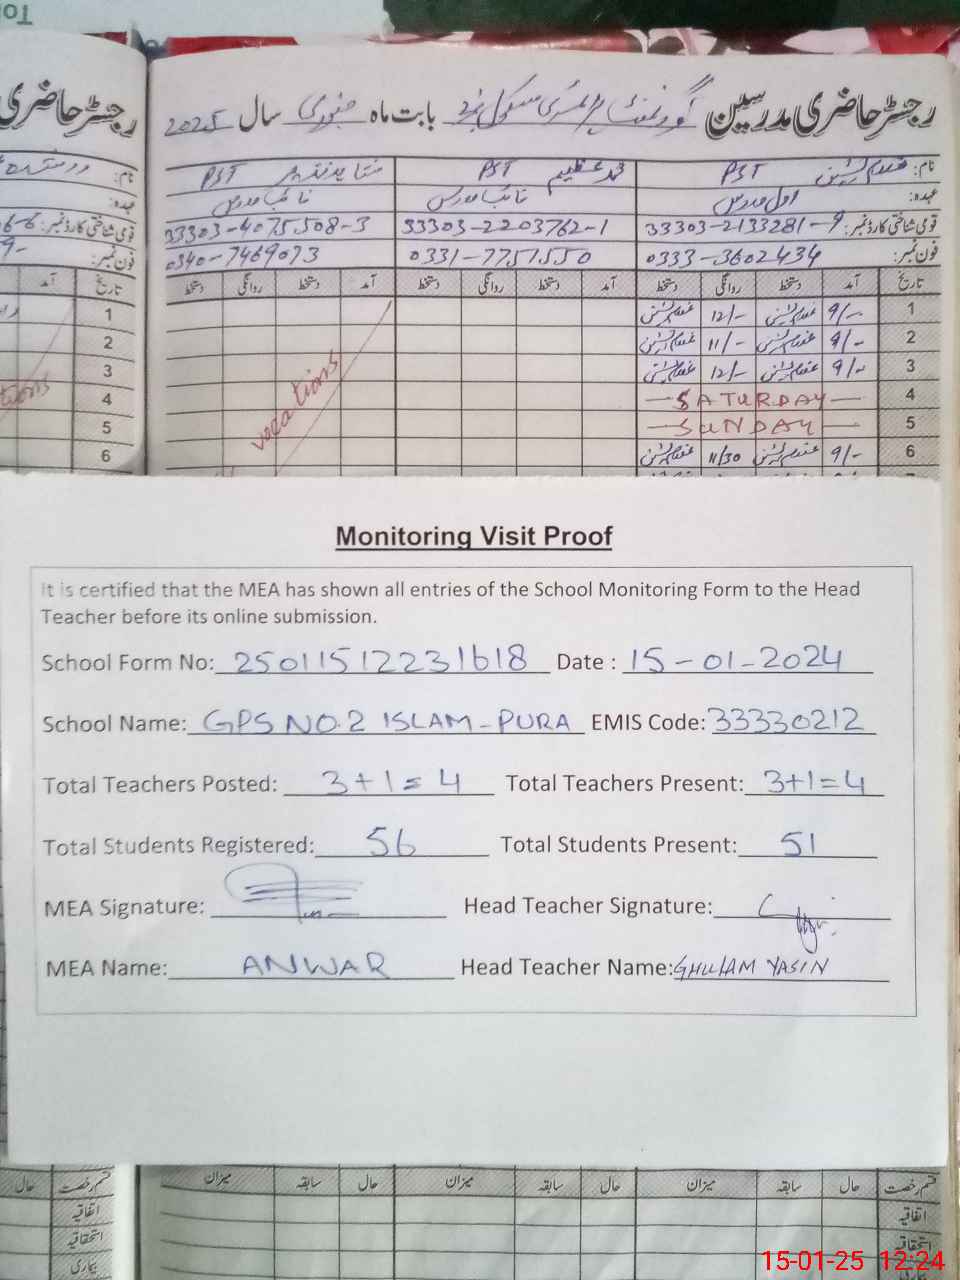 رجسٹر حاضری مدرسین گورنمنٹ پرائمری سکول نمبر2 بابت ماہ جنوری سال 2025
رجسٹر حاضری
نام: غلام یٰسین PST محمد عظیم PST PST
عہدہ: اول مدرس نائب مدرس نائب مدرس
قومی شناختی کارڈ نمبر: 33303-2133281-9 33303-2203762-1 33303-4075508-3
فون نمبر: 0333-3602434 0331-7751550 0340-7469073
تاریخ آمد دستخط روانگی دستخط آمد دستخط روانگی دستخط آمد دستخط روانگی دستخط
1 9/- غلام یٰسین 12/- غلام یٰسین
2 9/- غلام یٰسین 11/- غلام یٰسین
3 9/- غلام یٰسین 12/- غلام یٰسین
4 SATURDAY
5 SUNDAY
6 9/- غلام یٰسین 11/30 غلام یٰسین
vocations
نام:
عہدہ:
قومی شناختی کارڈ نمبر:
فون نمبر:
تاریخ آمد
1
2
3
4
5
6
Monitoring Visit Proof
It is certified that the MEA has shown all entries of the School Monitoring Form to the Head
Teacher before its online submission.
School Form No: 25011512231618 Date : 15-01-2024
School Name: GPS NO.2 ISLAM-PURA EMIS Code: 33330212
Total Teachers Posted: 3+1=4 Total Teachers Present: 3+1=4
Total Students Registered: 56 Total Students Present: 51
MEA Signature: Head Teacher Signature:
MEA Name: ANWAR Head Teacher Name: GHULAM YASIN
قسم رخصت حال سابقہ میزان حال سابقہ میزان حال سابقہ میزان
اتفاقیہ
استحقاقیہ
بیماری
قسم رخصت حال
اتفاقیہ
استحقاقیہ
بیماری
15-01-25 12:24